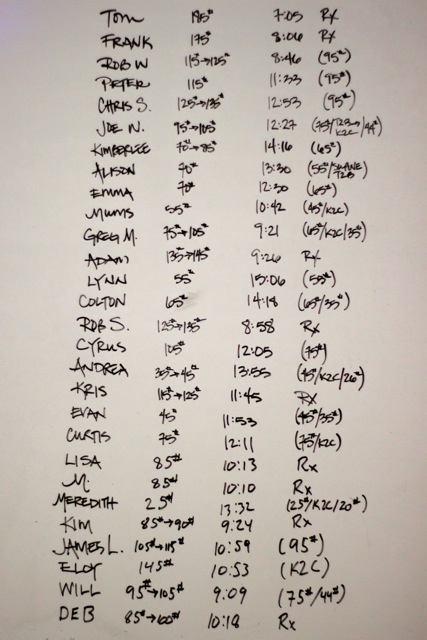 Tom 195# 7:05 Rx
FRANK 175# 8:06 Rx
ROB W 115#→125# 8:46 (95#)
PETER 115# 11:33 (95#)
CHRIS S. 125#→135# 12:53 (95#)
JOE N. 95#→105# 12:27 (75#/T2B→K2C/44#)
KIMBERLEE 70#→85# 14:16 (65#)
ALISON 70# 13:30 (55#/ T2B)
EMMA 70# 12:30 (65#)
MUMS 55# 10:42 (45#/K2C)
GREG M. 75#→105# 9:21 (65#/K2C/35#)
ADAM 135#→145# 9:26 Rx
LYNN 55# 15:06 (55#)
COLTON 65# 14:18 (65#/35#)
ROB S. 125#→135# 8:58 Rx
CYRUS 105# 12:05 (75#)
ANDREA 35#→45# 13:55 (45#/K2C/26#)
KRIS 115#→125# 11:45 Rx
EVAN 45# 11:53 (45#/35#)
CURTIS 75# 12:11 (75#/K2C)
LISA 85# 10:13 Rx
M. 85# 10:10 Rx
MEREDITH 25# 13:32 (25#/K2C/20#)
KIM 85#→90# 9:24 Rx
JAMES L. 105#→115# 10:59 (95#)
ELOY 145# 10:53 (K2C)
WILL 95#→105# 9:09 (75#/44#)
DEB 10:18 Rx